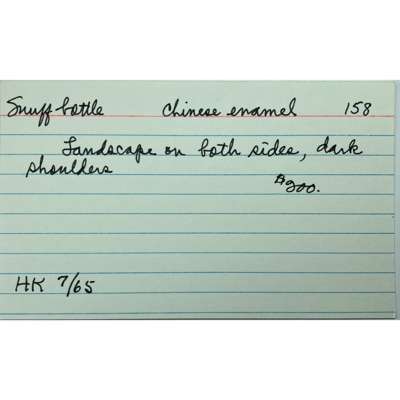 Snuff bottle Chinese enamel 158
Landscape on both sides, dark
shoulders
$200.
HK 7/65